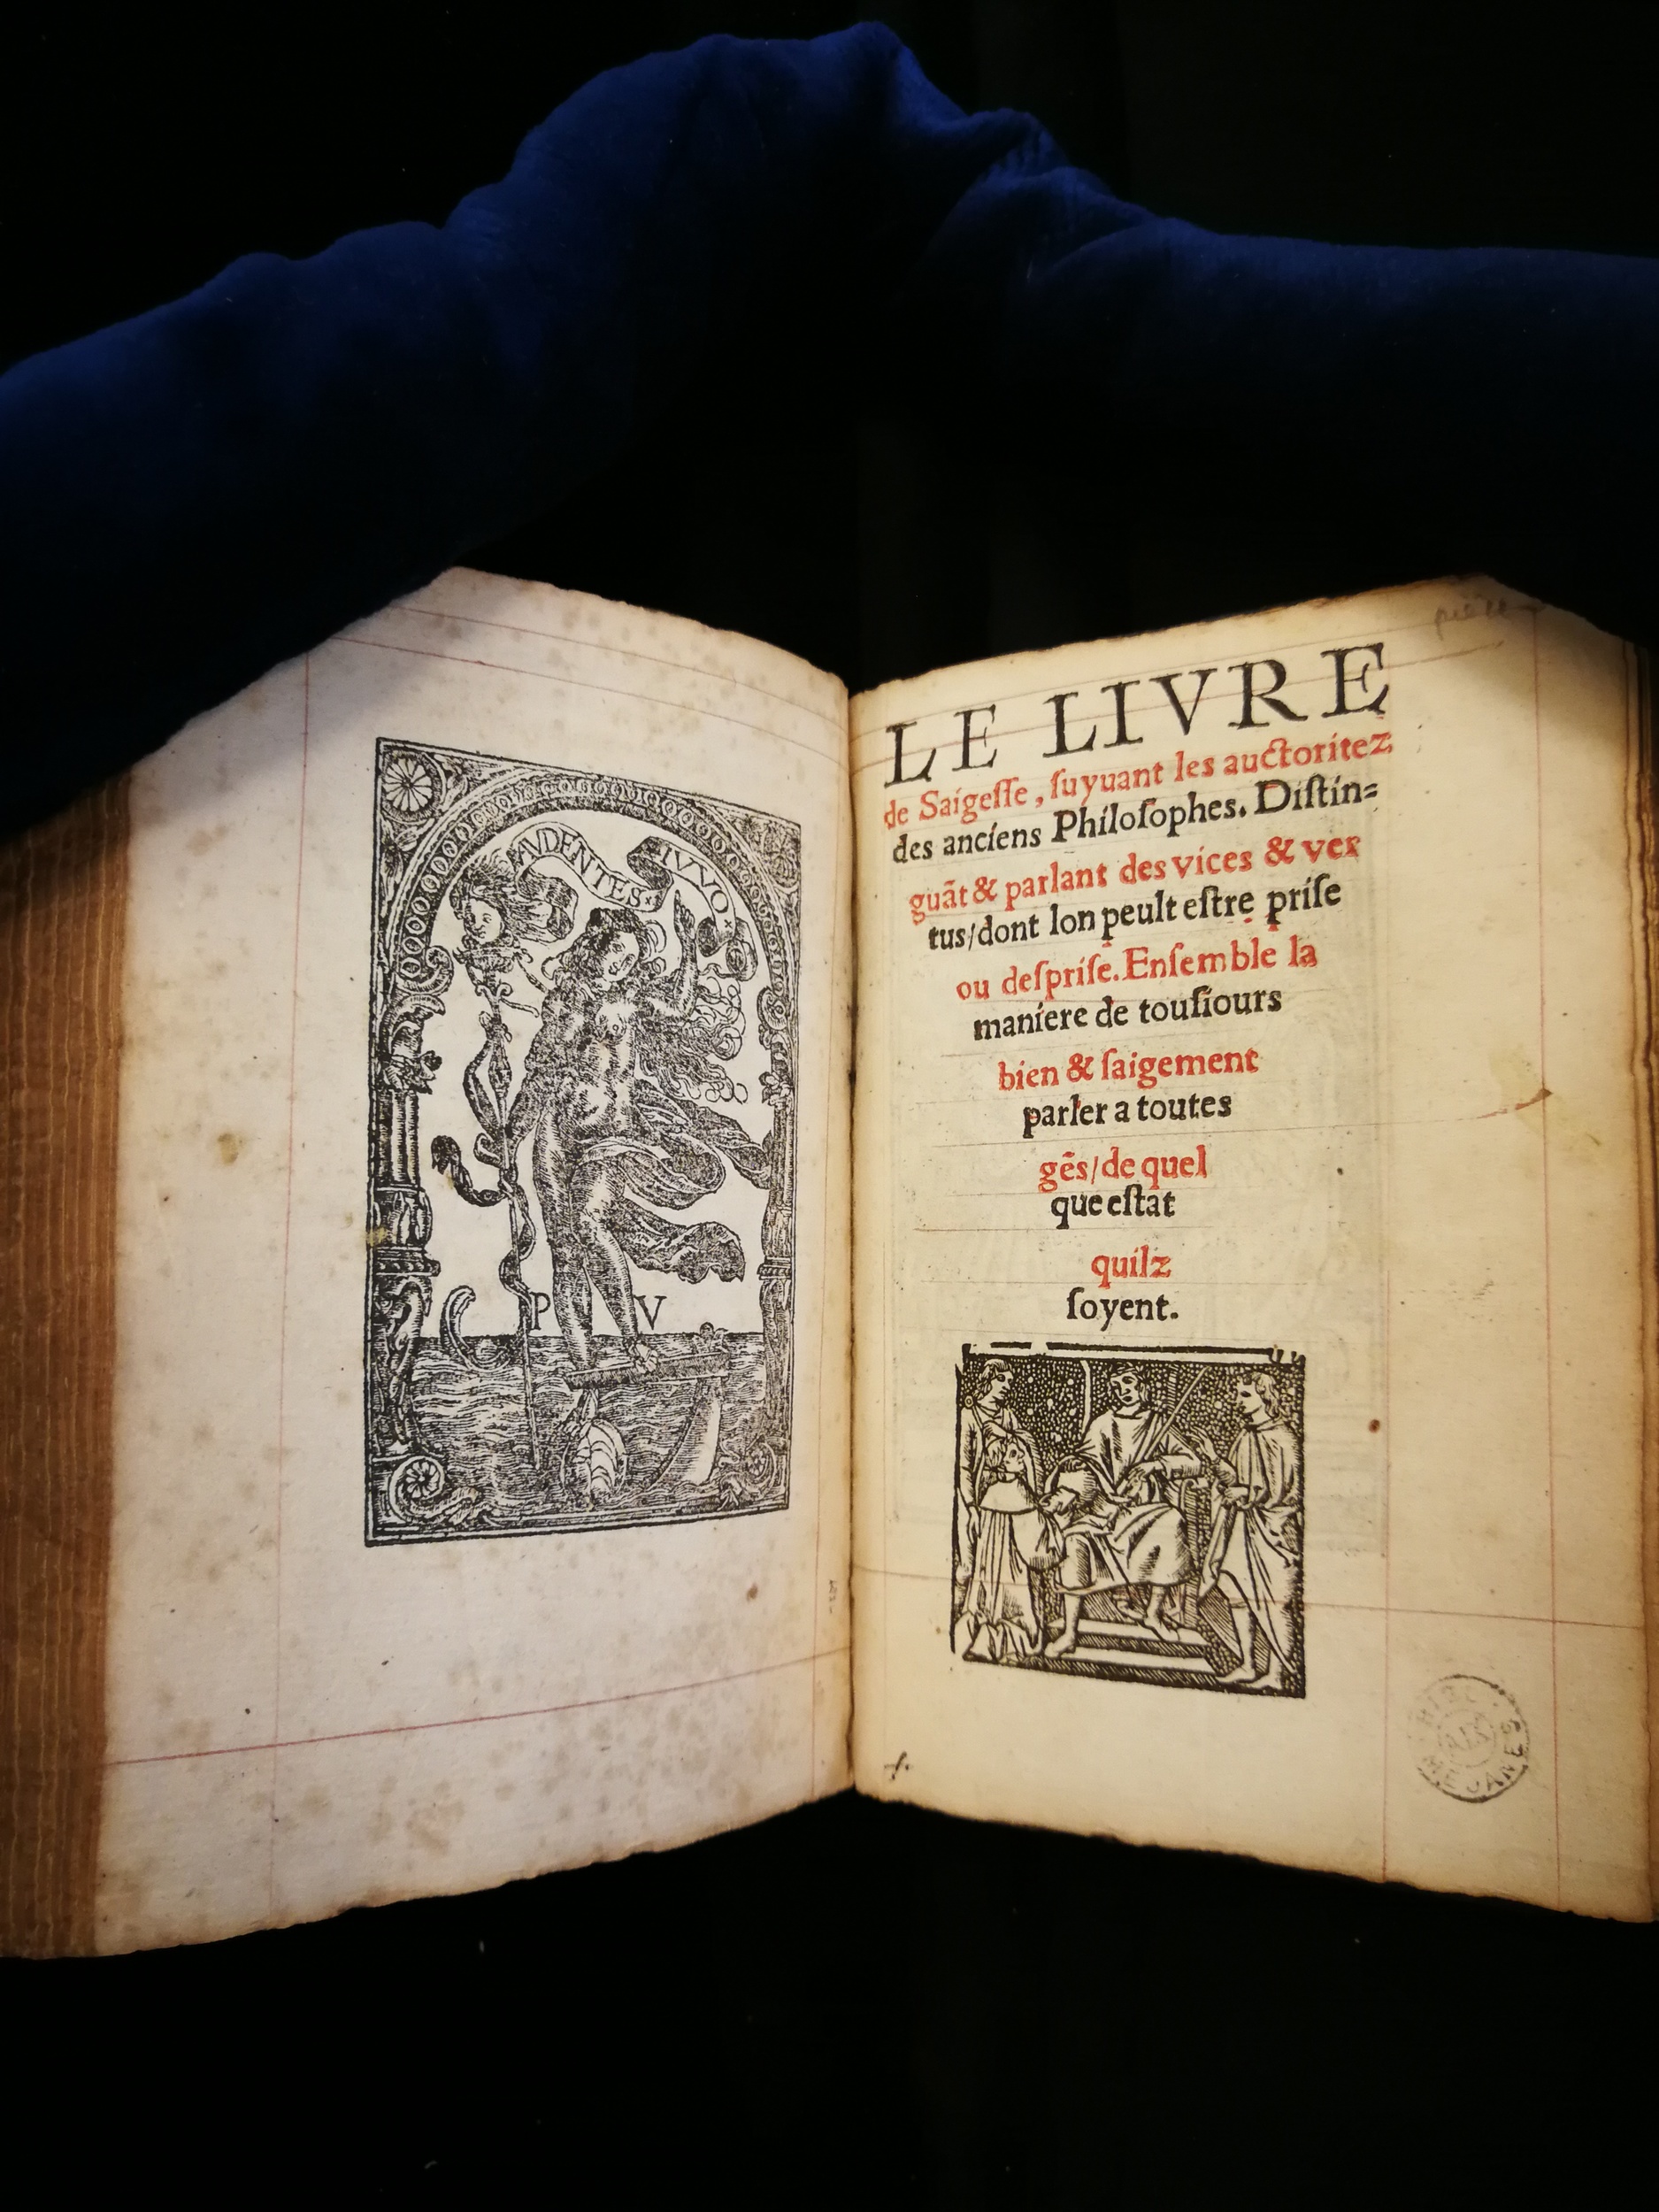 AUDENTES IVVO
P V
LE LIVRE
de Saigeſſe, ſuyuant les auctoritez
des anciens Philoſophes. Diſtin=
guãt & parlant des vices & ver
tus/dont lon peult eſtre priſe
ou deſpriſe. Enſemble la
maniere de touſiours
bien & ſaigement
parler a toutes
gẽs/de quel
que eſtat
quilz
ſoyent.
BIBL.
AIX
MEJANES